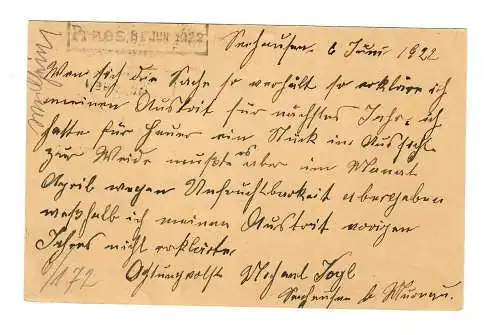 Präs. 8. JUN 1922
Seehausen. 6 Juni 1922
Wen sich die Sache so verhält so erkläre ich
meinen Austrit für nächstes Jahr, ich
hatte für heuer ein Stück in Aussicht
zur Weide mußte es aber im Monat
April wegen Unfruchtbarkeit abergeben
weßhalb ich meinen Austrit vorigen
Jahres nicht erklärte.
Achtungvolst Michael
Seehausen b Murnau.
1172